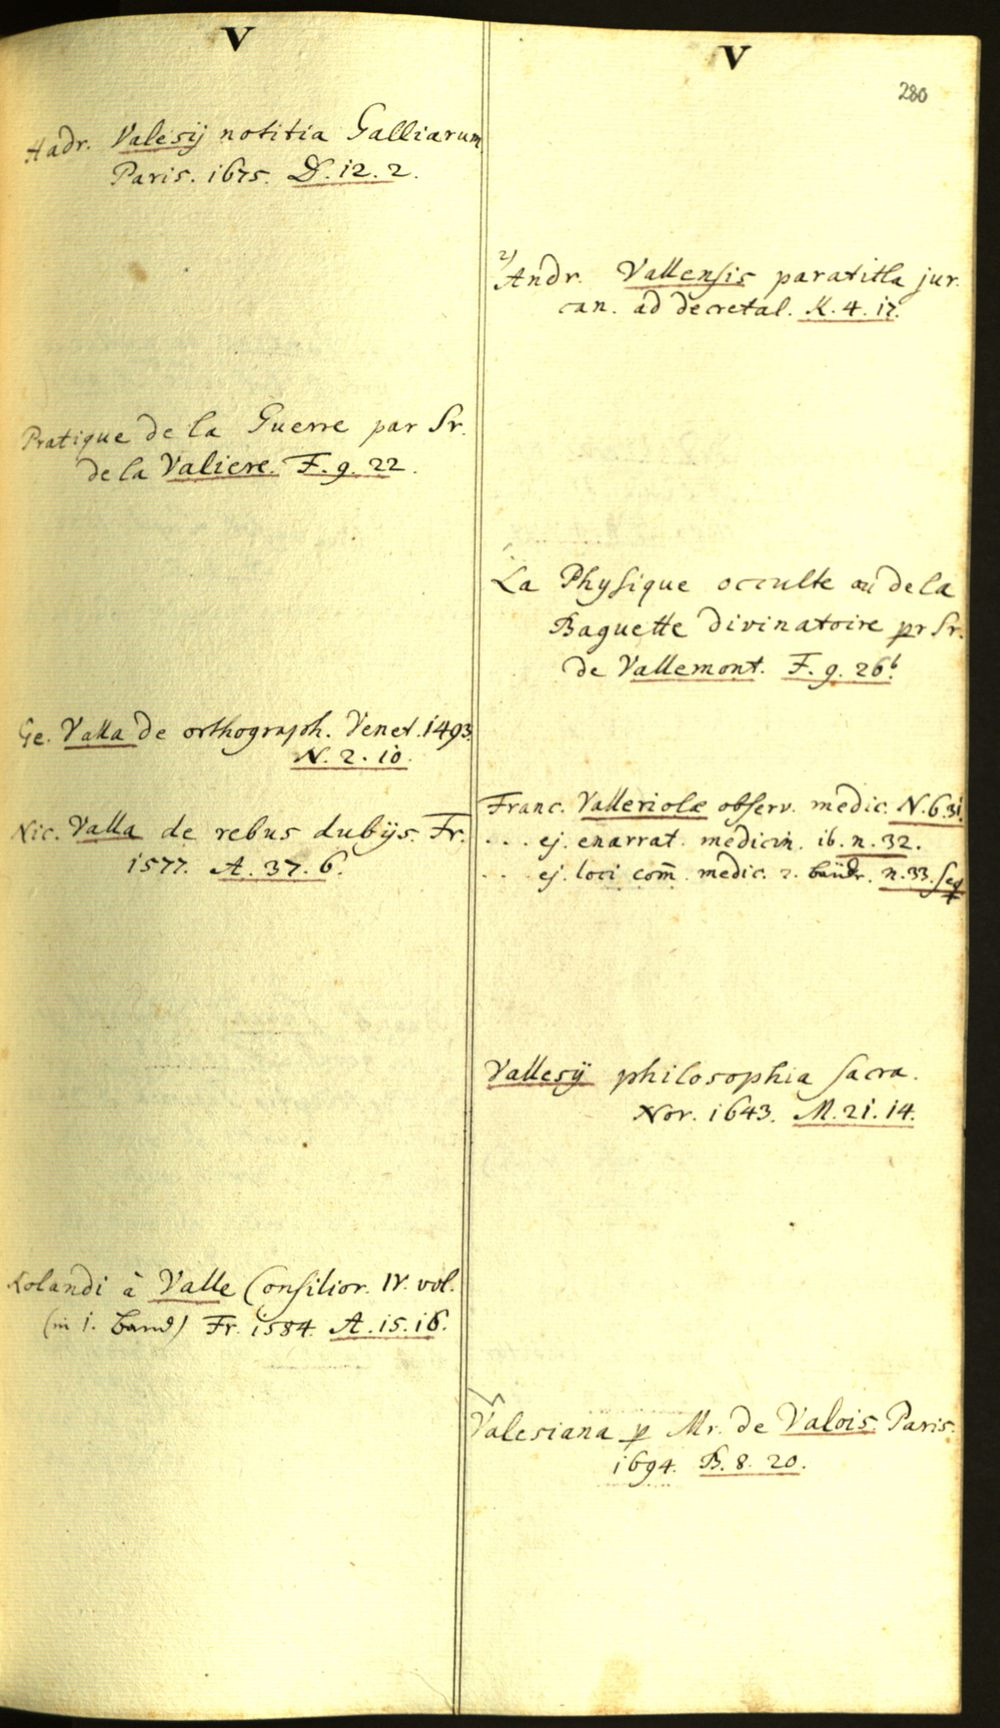 V
Hadr. Valesij notitia Galliarum
Paris. 1675. D. 12. 2.
Pratique de la Guerre par Sr.
de la Valiere. F. 9. 22.
Ge. Valla de orthograph. Venet. 1493.
N. 2. 10.
Nic. Valla de rebus dubijs. Fr.
1577. A. 37. 6.
Rolandi à Valle Consilior. IV. vol.
(in 1. Band) Fr. 1584. A. 15. 16.
V
280
2) Andr. Vallensis paratitla jur.
can. ad decretal. K. 4. 17.
La Physique occulte ou de la
Baguette divinatoire pr Sr.
de Vallemont. F. 9. 26b.
Franc. Valleriolæ observ. medic. N. 6. 31.
. . . ej. enarrat. medicin. ib. n. 32.
. . . ej. loci com̄. medic. 2. bänd. n. 33. seq
Vallesij philosophia sacra.
Nor. 1643. M. 21. 14.
Valesiana p Mr. de Valois. Paris.
1694. B. 8. 20.